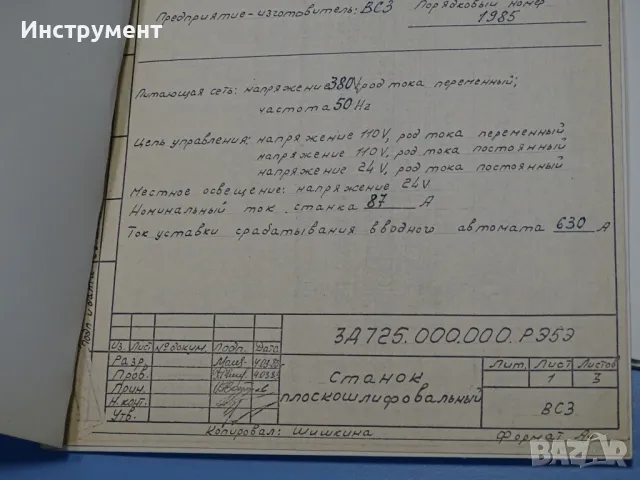 Инструмент
Предприятие-изготовитель: ВСЗ Порядковый номер
1985
Питающая сеть: напряжение 380V, род тока переменный;
частота 50 Hz
Цепь управления: напряжение 110V, род тока переменный
напряжение 110V, род тока постоянный
напряжение 24V, род тока постоянный
Местное освещение: напряжение 24V
Номинальный ток станка 87 А
Ток уставки срабатывания вводного автомата 630 А
Подп. и дата
3Д725.000.000.РЭ5Э
Из. Лист № докум. Подп. Дата
Разр.
Пров.
Прин.
Н.конт.
Утв.
Станок
плоскошлифовальный
Лит. Лист Листов
1 3
ВСЗ
Копировал: Шишкина
Формат А4
bazar